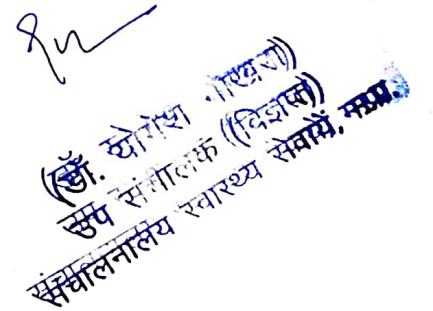 (डॉ. योगेश
उप संचालक (विज्ञप्त)
संचालनालय स्वास्थ्य सेवायें, म.प्र.